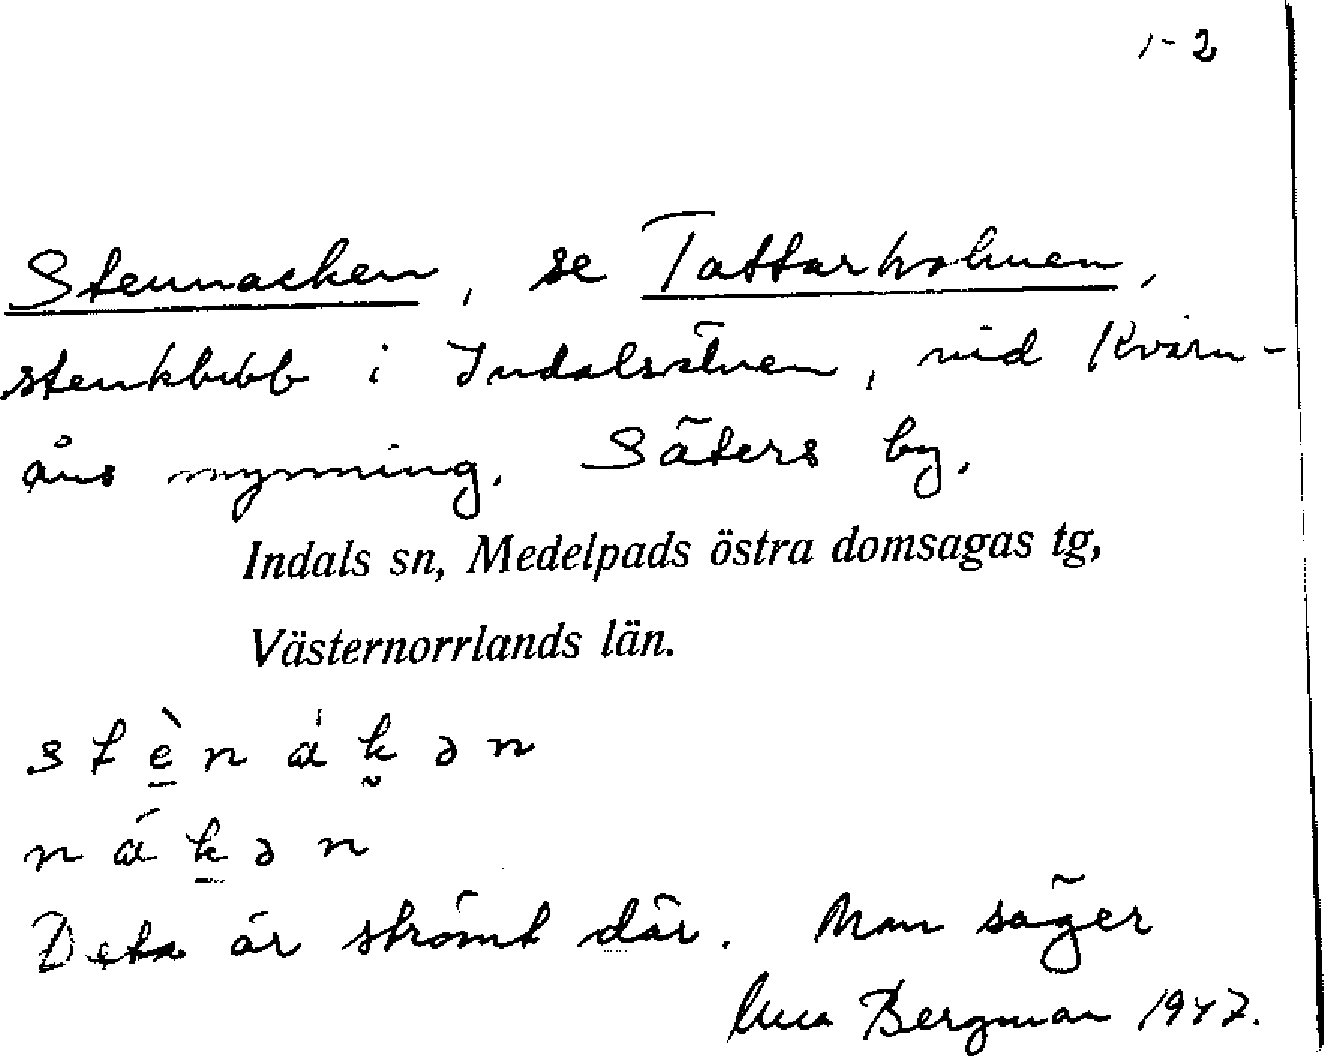 1-2
Stennacken, se Tattarholmen,
stenklubb i Indalsälven, vid Kvarn-
åns mynning. Säters by.
Indals sn, Medelpads östra domsagas tg,
Västernorrlands län.
s t è n á k ə n
n á k ə n
Deta är strömt där. Man säger
Bergman 1947.